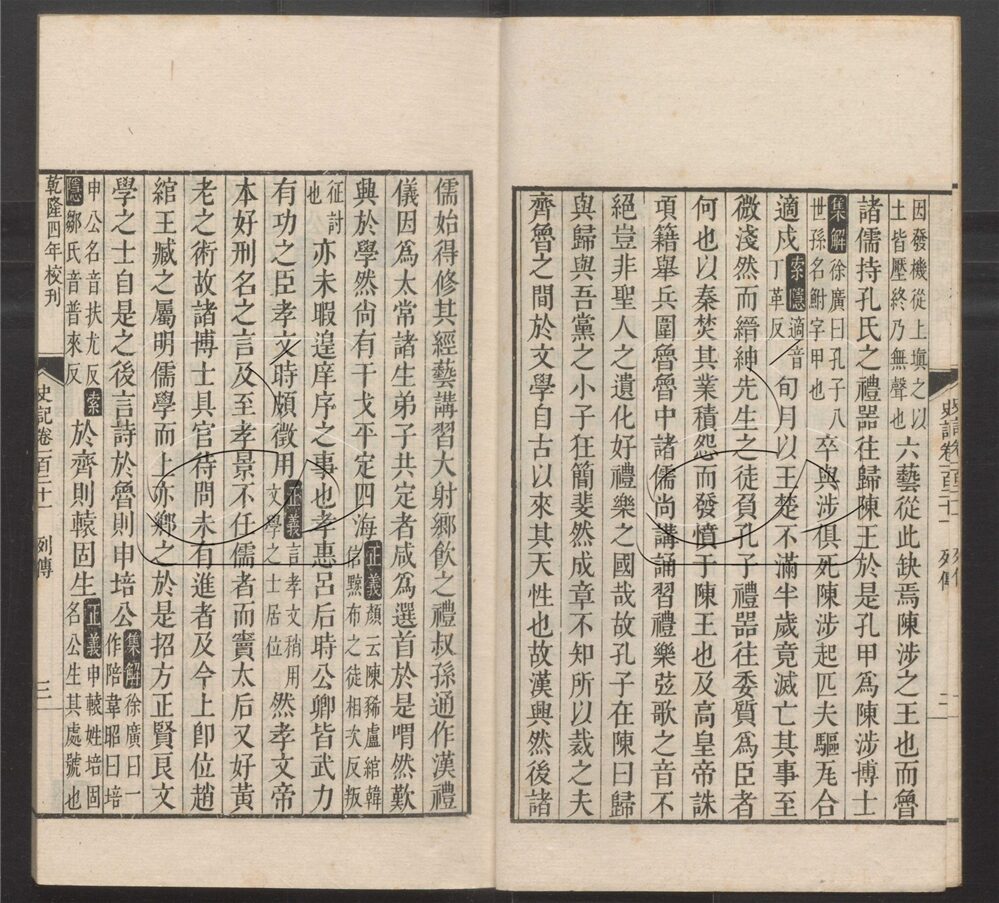 因發機從上塡之以
土皆壓終乃無聲也
六藝從此缺焉陳涉之王也而魯
諸儒持孔氏之禮器往歸陳王於是孔甲爲陳涉博士
集解徐廣曰孔子八
世孫名鮒字甲也
卒與涉俱死陳涉起匹夫驅瓦合
適戍
索隱適音
丁革反
旬月以王楚不滿半歲竟滅亡其事至
微淺然而縉紳先生之徒負孔子禮器往委質爲臣者
何也以秦焚其業積怨而發憤于陳王也及高皇帝誅
項籍舉兵圍魯魯中諸儒尚講誦習禮樂弦歌之音不
絕豈非聖人之遺化好禮樂之國哉故孔子在陳曰歸
與歸與吾黨之小子狂簡斐然成章不知所以裁之夫
齊魯之間於文學自古以來其天性也故漢興然後諸
史記卷一百二十一 列傳 二
儒始得修其經藝講習大射鄉飲之禮叔孫通作漢禮
儀因爲太常諸生弟子共定者咸爲選首於是喟然歎
興於學然尙有干戈平定四海
正義顏云陳豨盧綰韓
信黥布之徒相次反叛
征討
也
亦未暇遑庠序之事也孝惠呂后時公卿皆武力
有功之臣孝文時頗徵用
正義言孝文稍用
文學之士居位
然孝文帝
本好刑名之言及至孝景不任儒者而竇太后又好黃
老之術故諸博士具官待問未有進者及今上卽位趙
綰王臧之屬明儒學而上亦鄉之於是招方正賢良文
學之士自是之後言詩於魯則申培公
集解徐廣曰一
作陪韋昭曰培
申公名音扶尤反索
隱鄒氏音普來反
於齊則轅固生
正義申轅姓培固
名公生其處號也
乾隆四年校刊
史記卷一百二十一 列傳 三